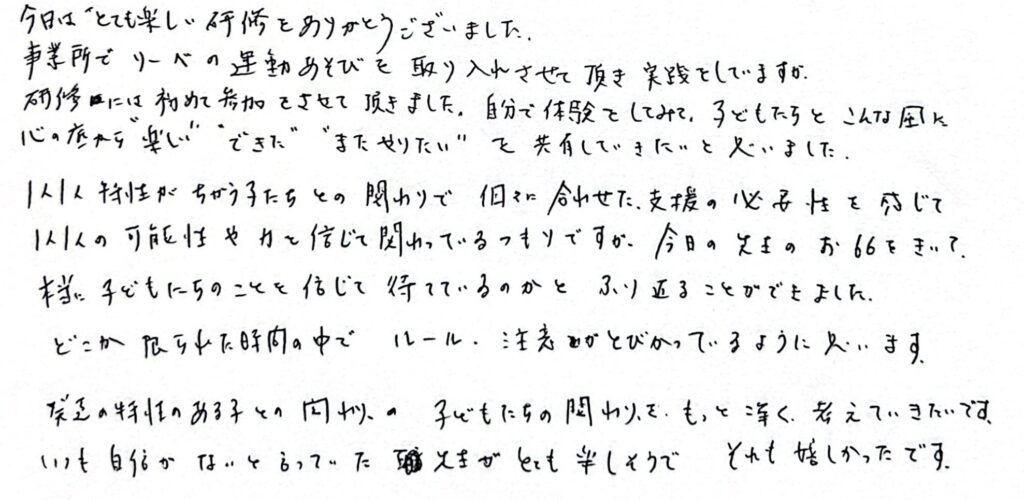 今日は"とても楽しい研修をありがとうございました。
事業所でリーベの運動あそびを取り入れさせて頂き実践をしていますが、
研修には初めて参加をさせて頂きました。自分で体験をしてみて、子どもたちとこんな風に
心の底から"楽しい""できた""またやりたい"を共有していきたいと思いました。
1人1人特性がちがう子たちとの関わりで個々に合わせた、支援の必要性を感じて
1人1人の可能性や力を信じて関わっているつもりですが、今日の先生のお話をきいて、
本当に子どもたちのことを信じて待てているのかとふり返ることができました。
どこか限られた時間の中でルール、注意がとびかっているように思います。
発達の特性のある子との関わり、の子どもたちの関わりを、もっと深く、考えていきたいです。
いつも自信がないと言っていた先生がとても楽しそうでそれも嬉しかったです。